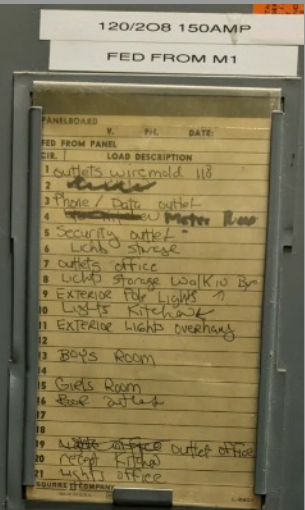 120/208 150AMP
FED FROM M1
PANELBOARD
V. PH. DATE
FED FROM PANEL
CIR. LOAD DESCRIPTION
1 outlets wiremold 118
2
3 Phone / Data outlet
4 Meter Row
5 Security outlet
6 Lights storage
7 outlets office
8 Lights Storage Walk in
9 EXTERIOR Pole Lights
10 Lights Kitchen
11 EXTERIOR Lights overhang
12
13 Boys Room
14
15 Girls Room
16 outlet
17
18
19 outlet office
20 recpt Kitchen
21 Lights office
SQUARE D COMPANY